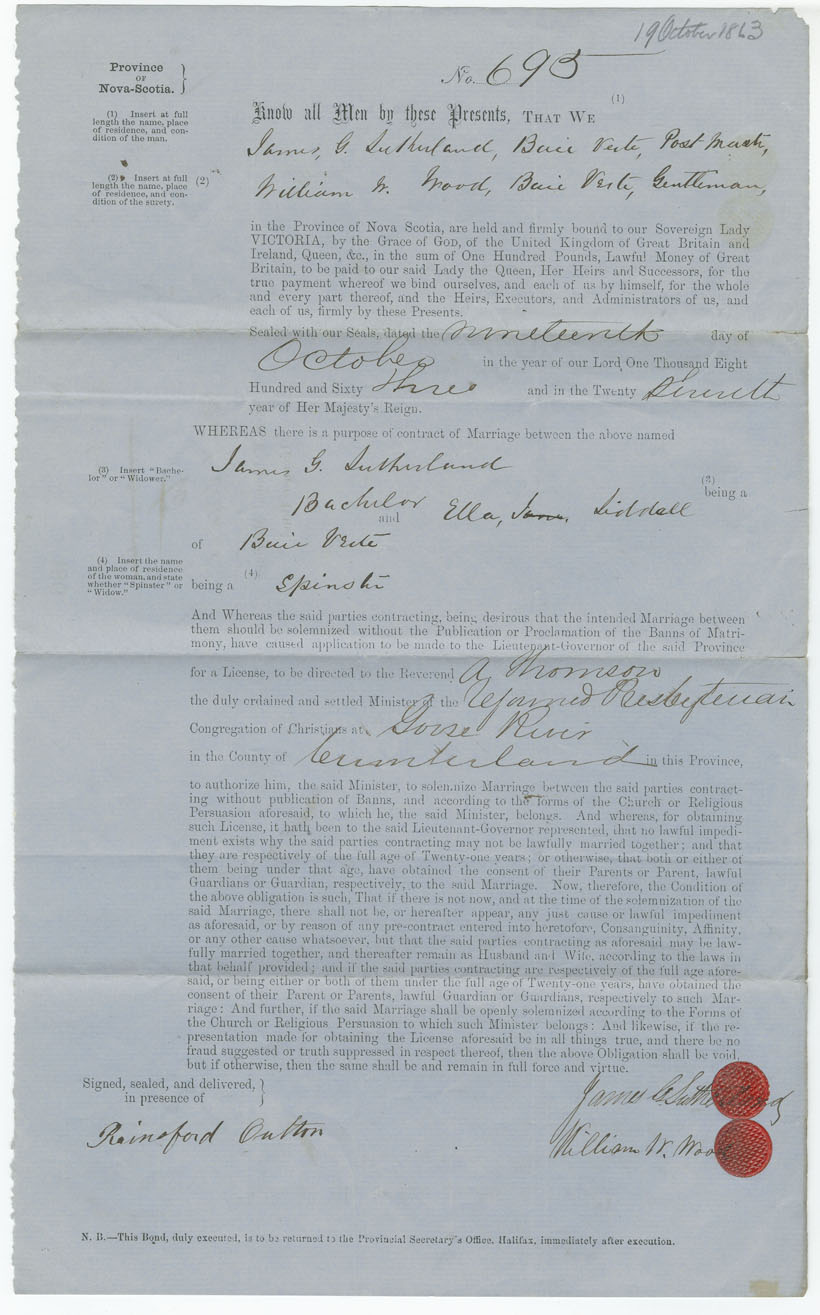 19 October 1863
Province
OF
Nova-Scotia.
No. 695
(1) Insert at full
length the name, place
of residence, and con-
dition of the man.
(1)
Know all Men by these Presents, THAT WE
James, G. Sutherland, Baie Verte, Post Master,
(2) Insert at full
length the name, place
of residence, and con-
dition of the surety.
(2)
William W. Wood, Baie Verte, Gentleman,
in the Province of Nova Scotia, are held and firmly bound to our Sovereign Lady
VICTORIA, by the Grace of GOD, of the United Kingdom of Great Britain and
Ireland, Queen, &c., in the sum of One Hundred Pounds, Lawful Money of Great
Britain, to be paid to our said Lady the Queen, Her Heirs and Successors, for the
true payment whereof we bind ourselves, and each of us by himself, for the whole
and every part thereof, and the Heirs, Executors, and Administrators of us, and
each of us, firmly by these Presents.
Sealed with our Seals, dated the nineteenth day of
October in the year of our Lord One Thousand Eight
Hundred and Sixty three and in the Twenty Seventh
year of Her Majesty's Reign.
WHEREAS there is a purpose of contract of Marriage between the above named
(3) Insert "Bache-
lor" or "Widower."
James G. Sutherland
(3)
being a
Bachelor and Ella, Jane, Siddall
of Baie Verte
(4) Insert the name
and place of residence
of the woman, and state
whether "Spinster" or
"Widow."
being a (4) Spinster
And Whereas the said parties contracting, being desirous that the intended Marriage between
them should be solemnized without the Publication or Proclamation of the Banns of Matri-
mony, have caused application to be made to the Lieutenant-Governor of the said Province
for a License, to be directed to the Reverend A Thomson
the duly ordained and settled Minister of the Reformed Presbyterian
Congregation of Christians at Goose River
in the County of Cumberland in this Province,
to authorize him, the said Minister, to solemnize Marriage between the said parties contract-
ing without publication of Banns, and according to the forms of the Church or Religious
Persuasion aforesaid, to which he, the said Minister, belongs. And whereas, for obtaining
such License, it hath been to the said Lieutenant-Governor represented, that no lawful impedi-
ment exists why the said parties contracting may not be lawfully married together; and that
they are respectively of the full age of Twenty-one years; or otherwise, that both or either of
them being under that age, have obtained the consent of their Parents or Parent, lawful
Guardians or Guardian, respectively, to the said Marriage. Now, therefore, the Condition of
the above obligation is such, That if there is not now, and at the time of the solemnization of the
said Marriage, there shall not be, or hereafter appear, any just cause or lawful impediment
as aforesaid, or by reason of any pre-contract entered into heretofore, Consanguinity, Affinity,
or any other cause whatsoever, but that the said parties contracting as aforesaid may be law-
fully married together, and thereafter remain as Husband and Wife, according to the laws in
that behalf provided; and if the said parties contracting are respectively of the full age afore-
said, or being either or both of them under the full age of Twenty-one years, have obtained the
consent of their Parent or Parents, lawful Guardian or Guardians, respectively to such Mar-
riage: And further, if the said Marriage shall be openly solemnized according to the Forms of
the Church or Religious Persuasion to which such Minister belongs: And likewise, if the re-
presentation made for obtaining the License aforesaid be in all things true, and there be no
fraud suggested or truth suppressed in respect thereof, then the above Obligation shall be void,
but if otherwise, then the same shall be and remain in full force and virtue.
Signed, sealed, and delivered,
in presence of
James G Sutherland
Rainsford Outton
William W. Wood
N. B.—This Bond, duly executed, is to be returned to the Provincial Secretary's Office, Halifax, immediately after execution.